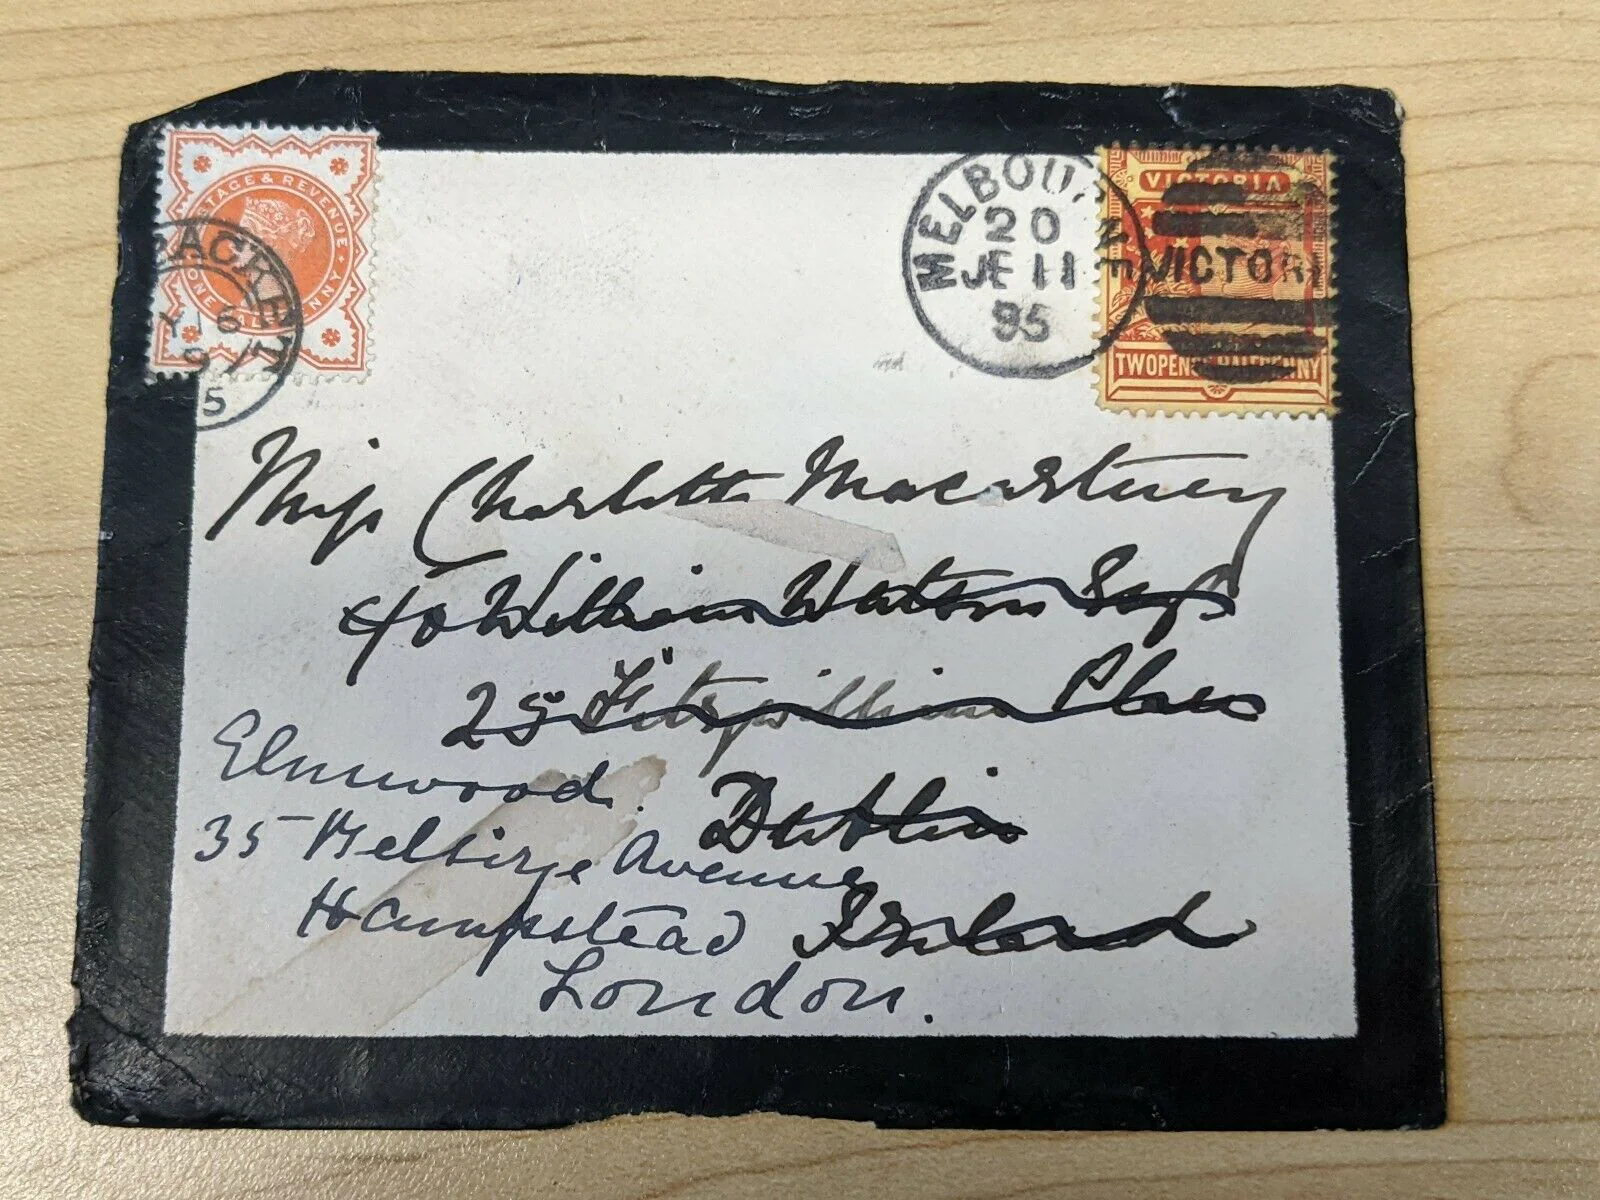 POSTAGE & REVENUE
ONE HALFPENNY
PACKET
16
9
5
MELBOURNE
20
JE 11
95
VICTORIA
VICTORI
TWOPENCE HALFPENNY
Miss Charlotte Macartney
William Watson Esqs
25 Fitzwilliam Place
Dublin
Ireland
Elmwood.
35 Belsize Avenue
Hampstead
London.